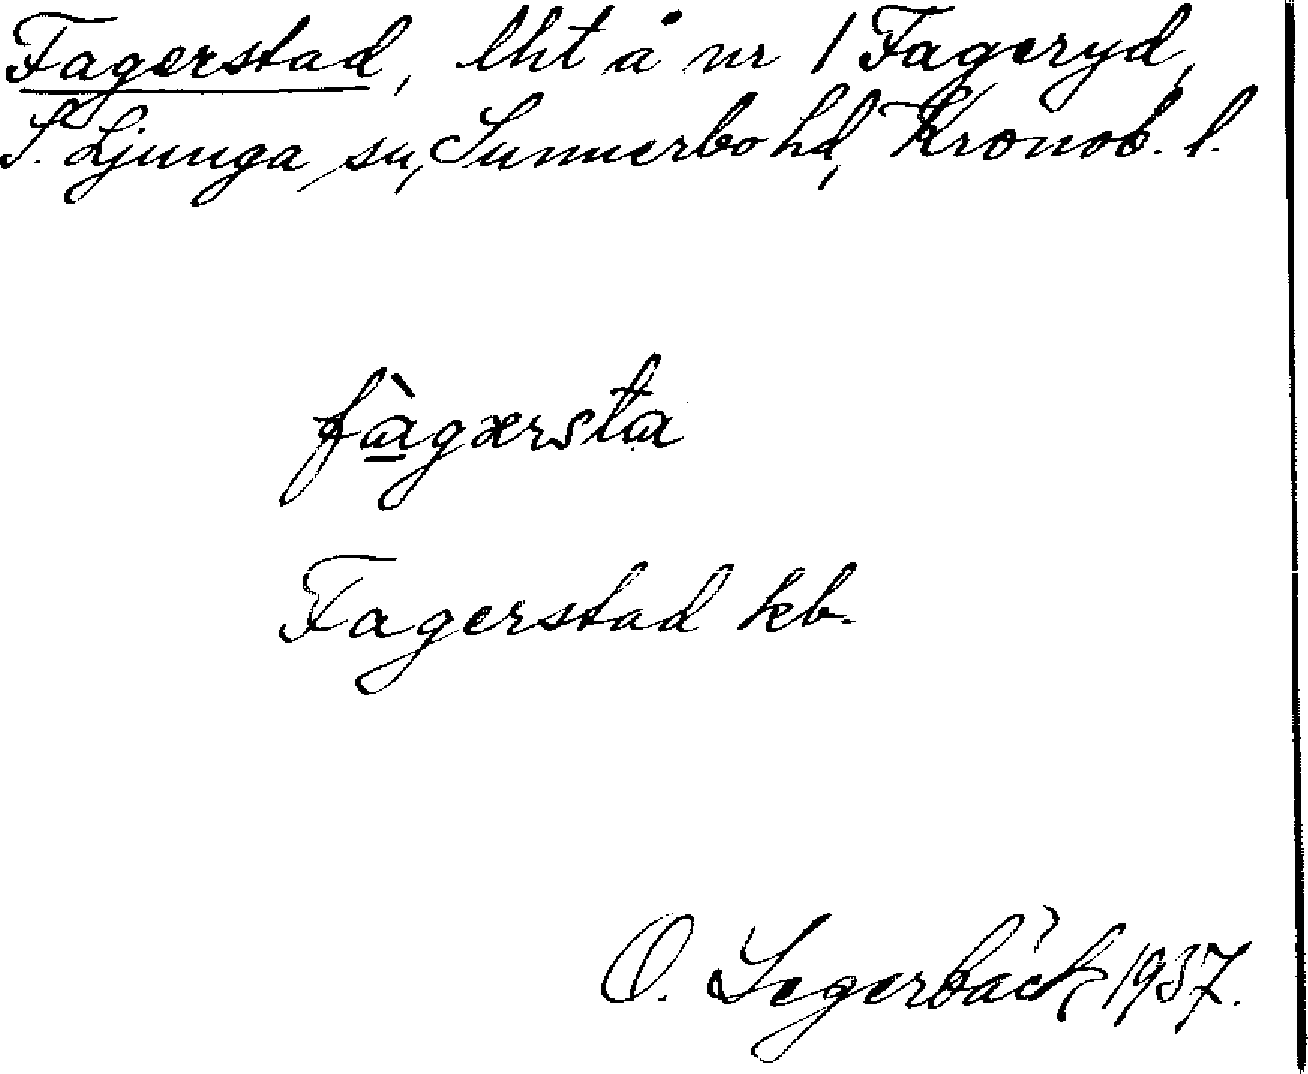 Fagerstad, lht å nr 1 Fageryd,
S. Ljunga sn, Sunnerbo hd, Kronob. l.
fàgærsta
Fagerstad kb.
O. Segerbäck 1937.